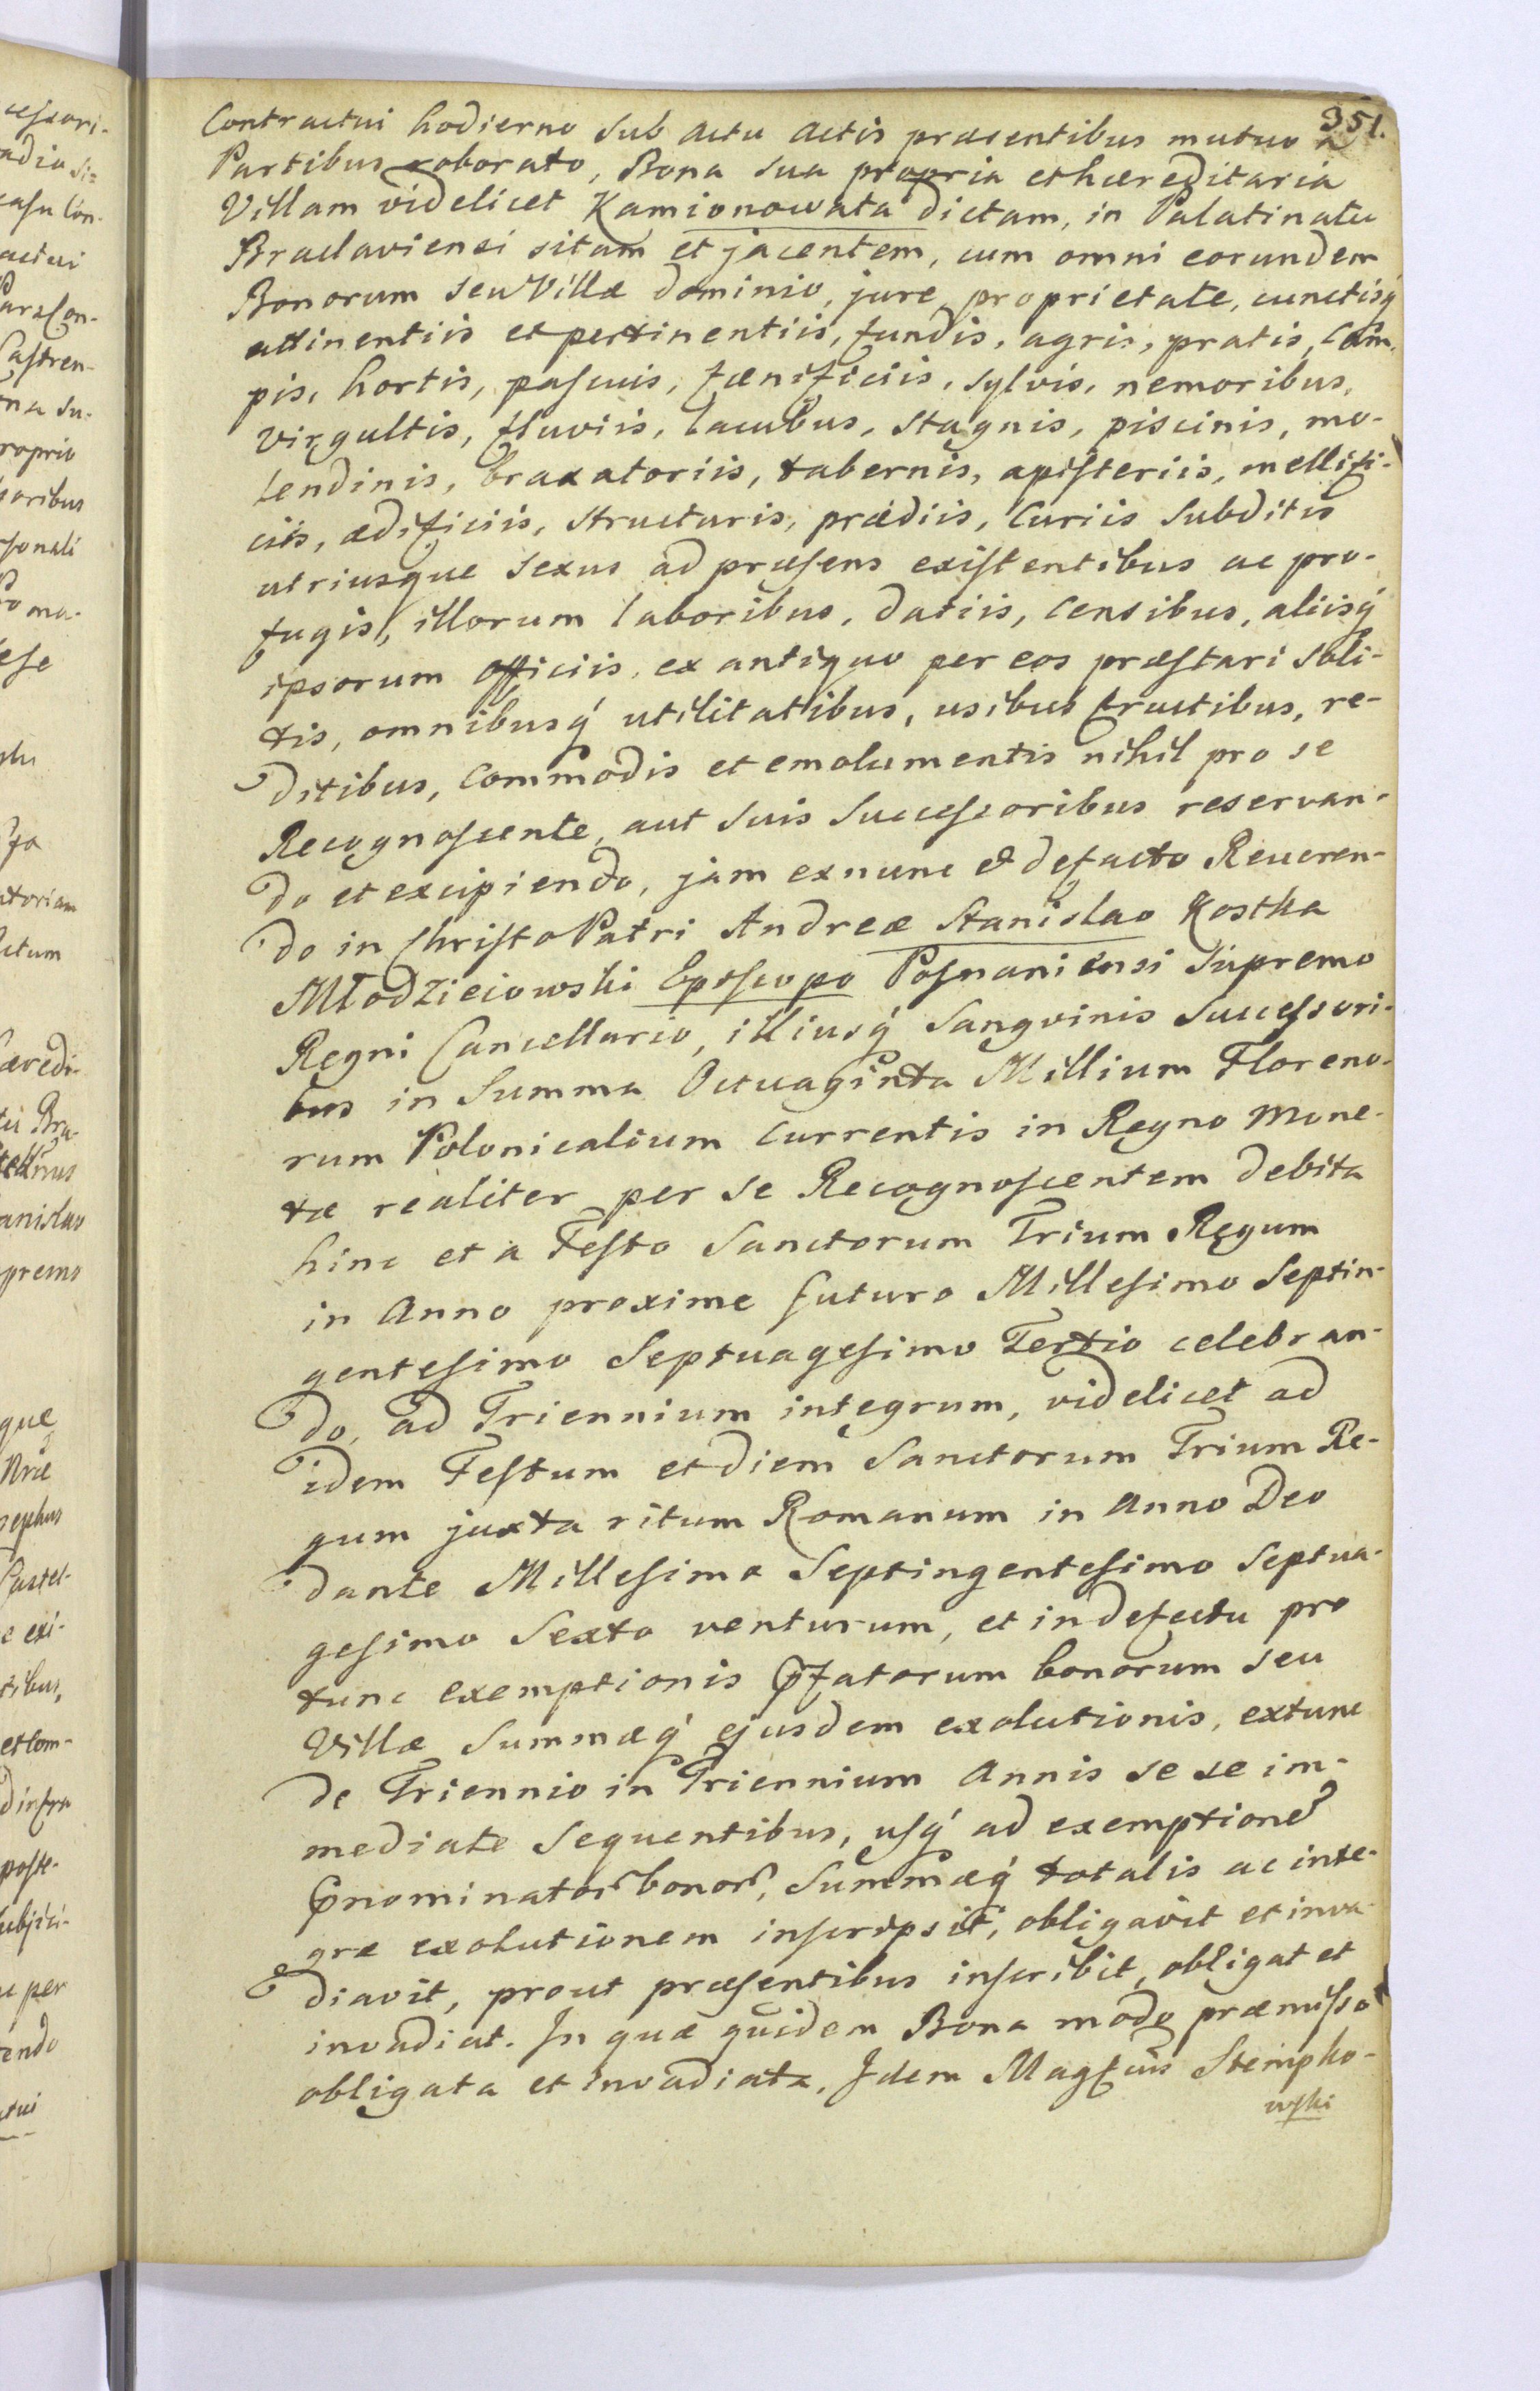 351.
Contractui hodierno sub actu actis præsentibus mutuo a
Partibus roborato, Bona sua propria et hæreditaria
Villam videlicet Kamionowata dictam, in Palatinatu
Braclaviensi sitam et jacentem, cum omni eorundem
Bonorum seu Villæ dominio, jure, proprietate, cunctisq́
attinentiis et pertinentiis, fundis, agris, pratis, Cam-
pis, hortis, pascuis, fænificiis, sylvis, nemoribus,
virgultis, fluviis, lacubus, stagnis, piscinis, mo-
lendinis, braxatoriis, tabernis, apisteriis, mellifi-
ciis, ædificiis, structuris, prædiis, Curiis Subditis
utriusque sexus ad præsens existentibus ac pro-
fugis, illorum laboribus, datiis, censibus, aliisq́
ipsorum officiis, ex antiquo per eos præstari soli-
tis, omnibusq́ utilitatibus, usibus fructibus, re-
ditibus, Commodis et emolumentis nihil pro se
Recognoscente, aut suis Successoribus reservan-
do et excipiendo, jam exnunc & defacto Reveren-
do in Christo Patri Andreæ Stanislao Kostka
Młodzieiowski Episcopo Posnaniensi Supremo
Regni Cancellario, illiusq́ Sangvinis Successori-
bus in Summa Octuaginta Millium Floreno-
rum Polonicalium Currentis in Regno Mone-
tæ realiter per se Recognoscentem debita
hinc et a Festo Sanctorum Trium Regum
in Anno proxime futuro Millesimo Septin-
gentesimo Septuagesimo Tertio celebran-
do, ad Triennium integrum, videlicet ad
idem Festum et diem Sanctorum Trium Re-
gum juxta ritum Romanum in Anno Deo
dante Millesimo Septingentesimo Septua-
gesimo Sexto venturum, et in defectu pro
tunc exemptionis Pfatorum bonorum seu
Villæ Summæq́ ejusdem exolutionis, extunc
de Triennio in Triennium Annis se se im-
mediate sequentibus, usq́ ad exemptione
Pnominator bonor, Summæq́ totalis ac inte-
græ exolutionem inscripsit, obligavit et inva-
diavit, prout præsentibus inscribit, obligat et
invadiat. In quæ quidem Bona modo præmisso
obligata et invadiata, Idem Magfcus Stempko-
wski